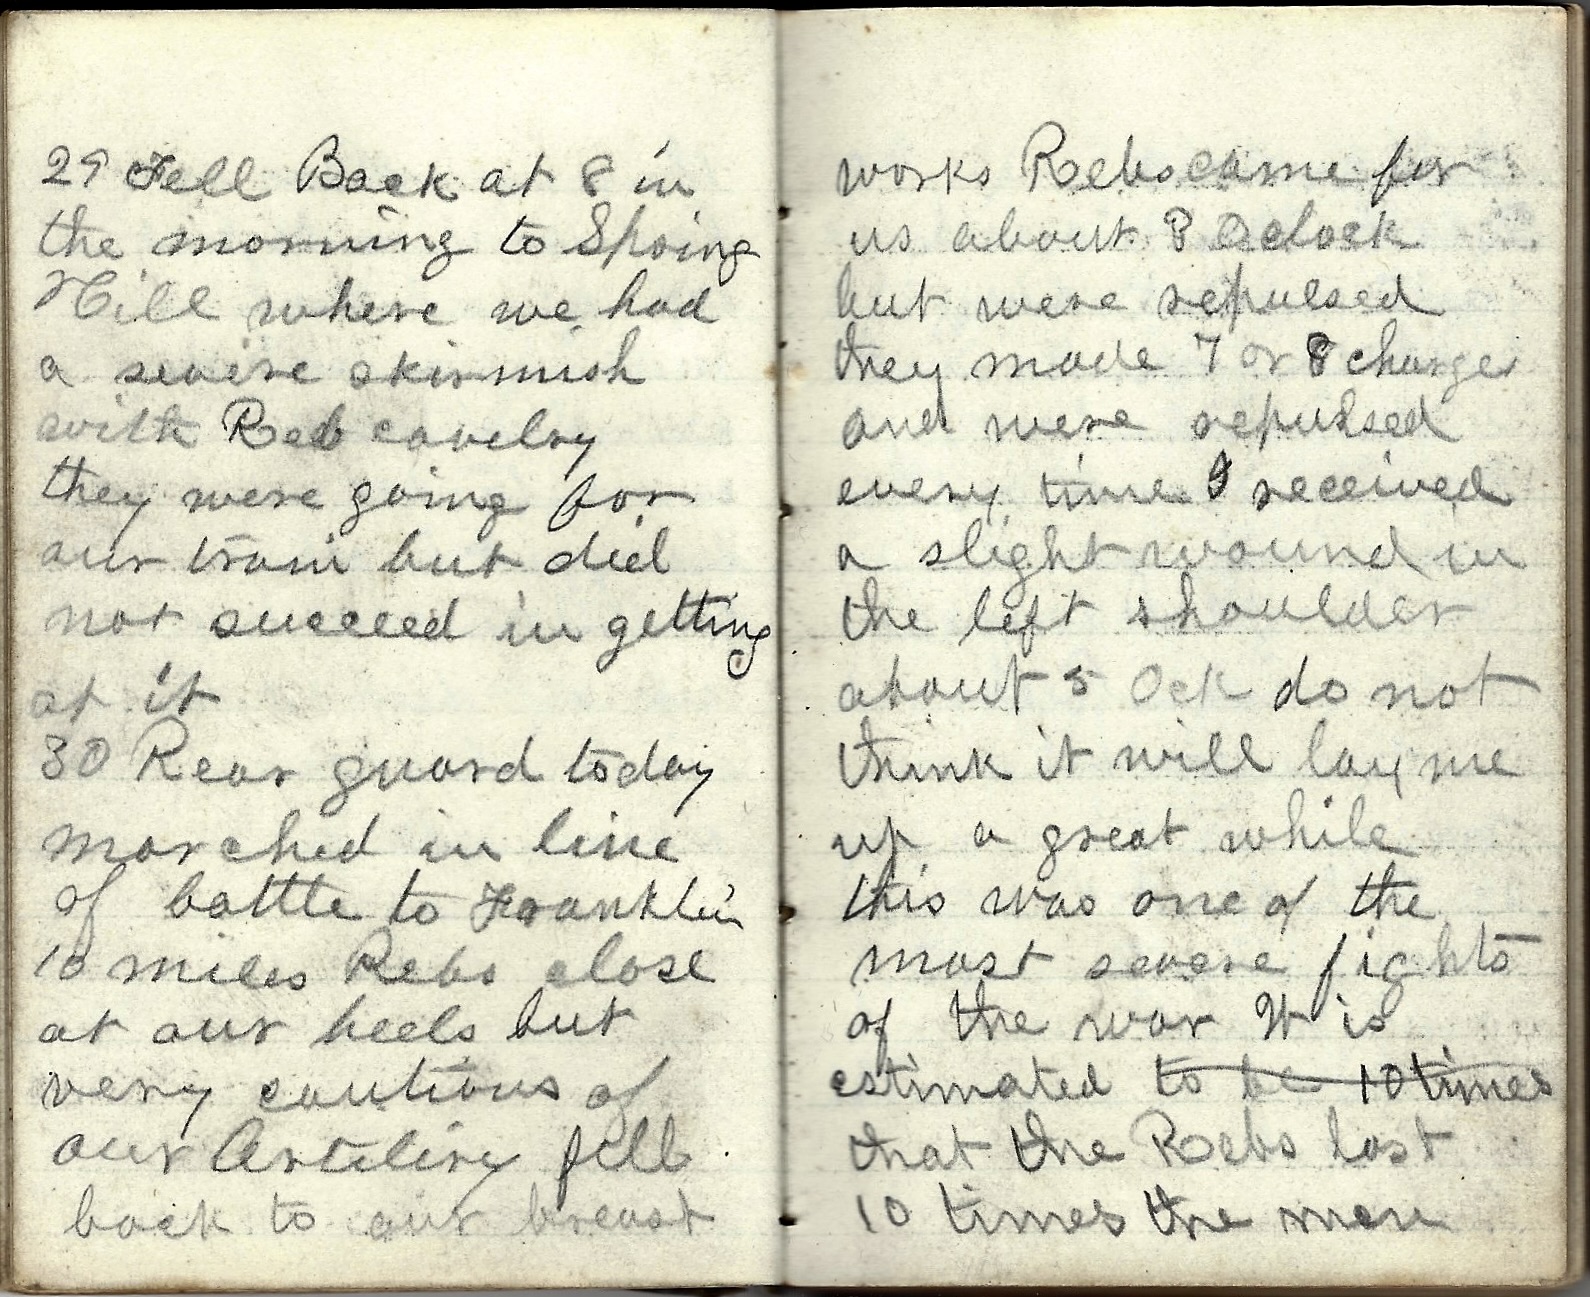 29 Fell Back at 8 in
the morning to Spring
Hill where we had
a seveire skirmish
with Reb cavelry
they were going for
our train but did
not succeed in getting
at it
30 Rear guard today
marched in line
of battle to Franklin
10 miles Rebs close
at our heels but
very cautious of
our Artiliry fell
back to our breast
works Rebs came for
us about 3 Oclock
but were repulsed
they made 7 or 8 charges
and were repulsed
every time I received
a slight wound in
the left shoulder
about 5 Ock do not
think it will lay me
up a great while
this was one of the
most severe fights
of the war It is
estimated to be 10 times
that the Rebs lost
10 times the men